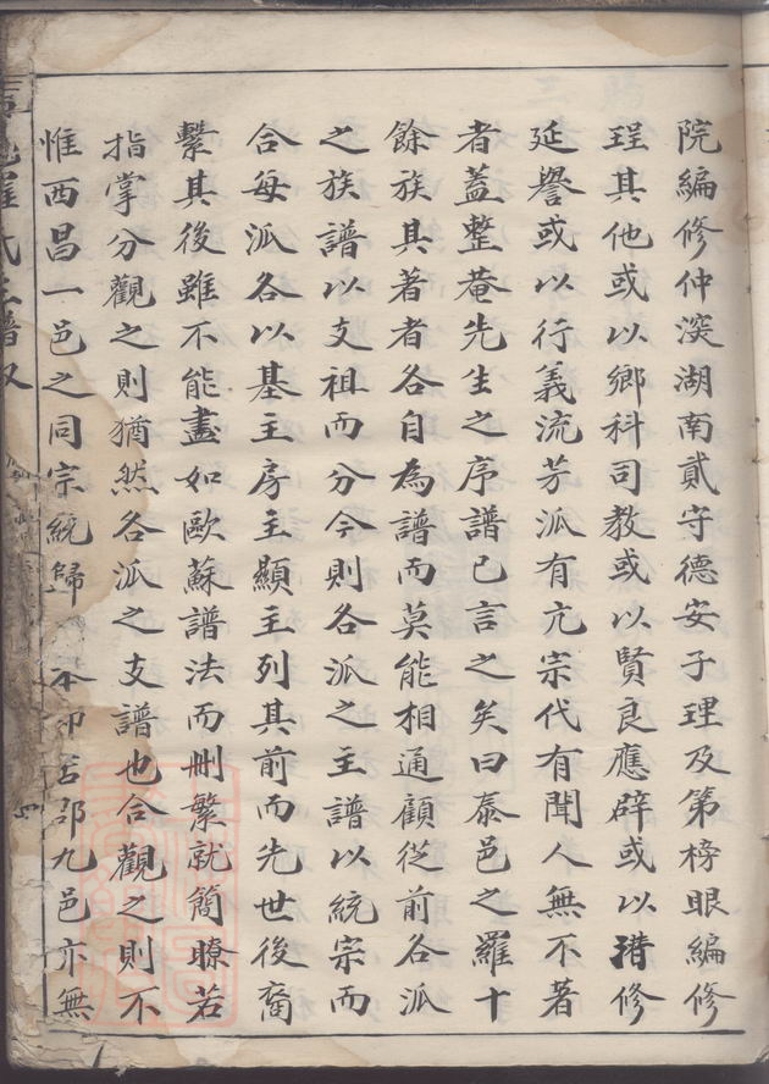 院編修仲深湖南貳守德安子理及第榜眼編修
珵其他或以鄉科司教或以賢良應辟或以潛修
延譽或以行義流芳派有亢宗代有聞人無不著
者蓋整菴先生之序譜已言之矣曰泰邑之羅十
餘族其著者各自為譜而莫能相通顧從前各派
之族譜以支祖而分今則各派之主譜以統宗而
合每派各以基主房主顯主列其前而先世後裔
繫其後雖不能盡如歐蘇譜法而刪繁就簡瞭若
指掌分觀之則猶然各派之支譜也合觀之則不
惟西昌一邑之同宗統歸一本即吉郡九邑亦無
羅氏主譜